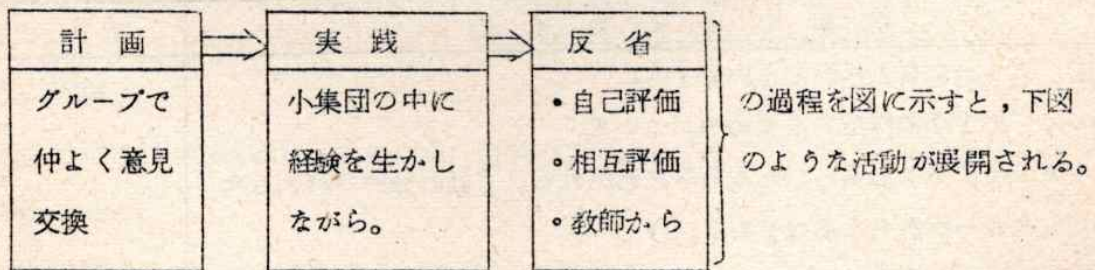 計画
グループで
仲よく意見
交換
実践
小集団の中に
経験を生かし
ながら。
反省
•自己評価
•相互評価
•教師から
の過程を図に示すと,下図
のような活動が展開される。